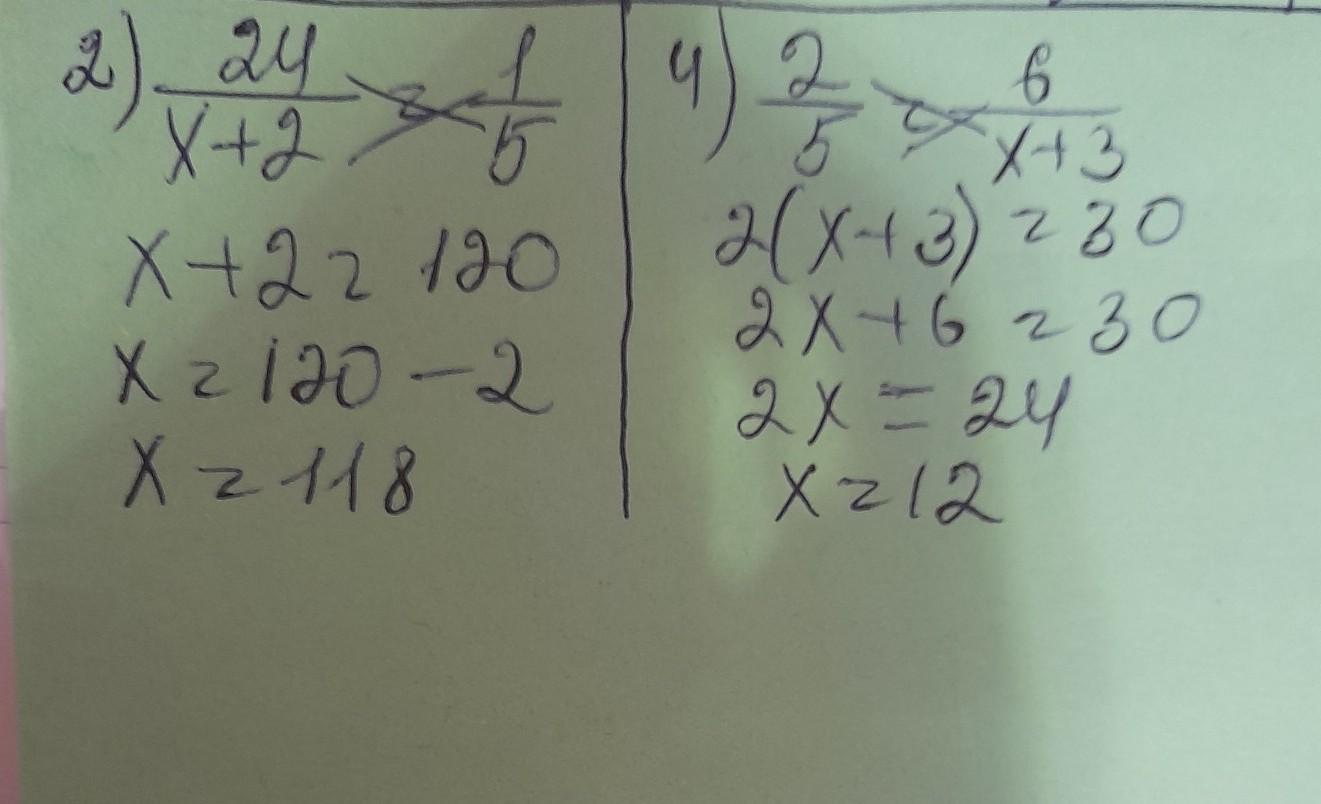 2) 24/(x+2) = 1/5
x+2 = 120
x = 120 - 2
x = 118
4) 2/5 = 6/(x+3)
2(x+3) = 30
2x+6 = 30
2x = 24
x = 12